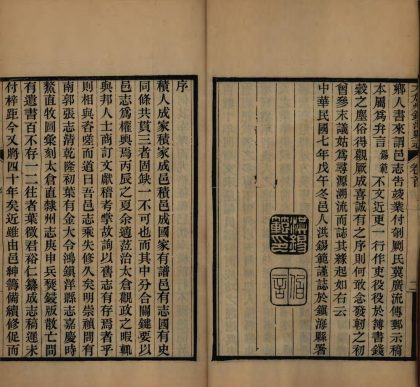 鄉人書來謂邑志告竣業付剞劂氏冀廣流傳郵示稿
本屬為弁言錫範不文近更一行作吏役役於簿書錢
穀之塵俗得觀厥成喜誠有之序則何敢念發軔之初
曾參末議姑為尋源溯流而誌其緣起如右云
中華民國七年戊午冬邑人洪錫範謹誌於鎮海縣署
洪錫範印
伯言
序
積人成家積家成邑積邑成國家有譜邑有志國有史
同條共貫三者固缺一不可也而其中分合關鍵要以
邑志為權輿焉丙辰之夏余適蒞治太倉觀政之暇輒
與邦人士商訂文獻稽考掌故詢以舊志有存焉者乎
則相與咨嗟而道曰吾邑志乘失修久矣明崇禎間有
南郭張志清乾隆初葉有金大令鴻鎮洋縣志嘉慶時
鰲直牧圖彙刻太倉直隸州志庚申兵燹鋟版散亡間
有遺書百不存一二往者葉徵君裕仁纂成志稿遲未
付梓距今又將四十年矣近雖由邑紳籌備續修促而